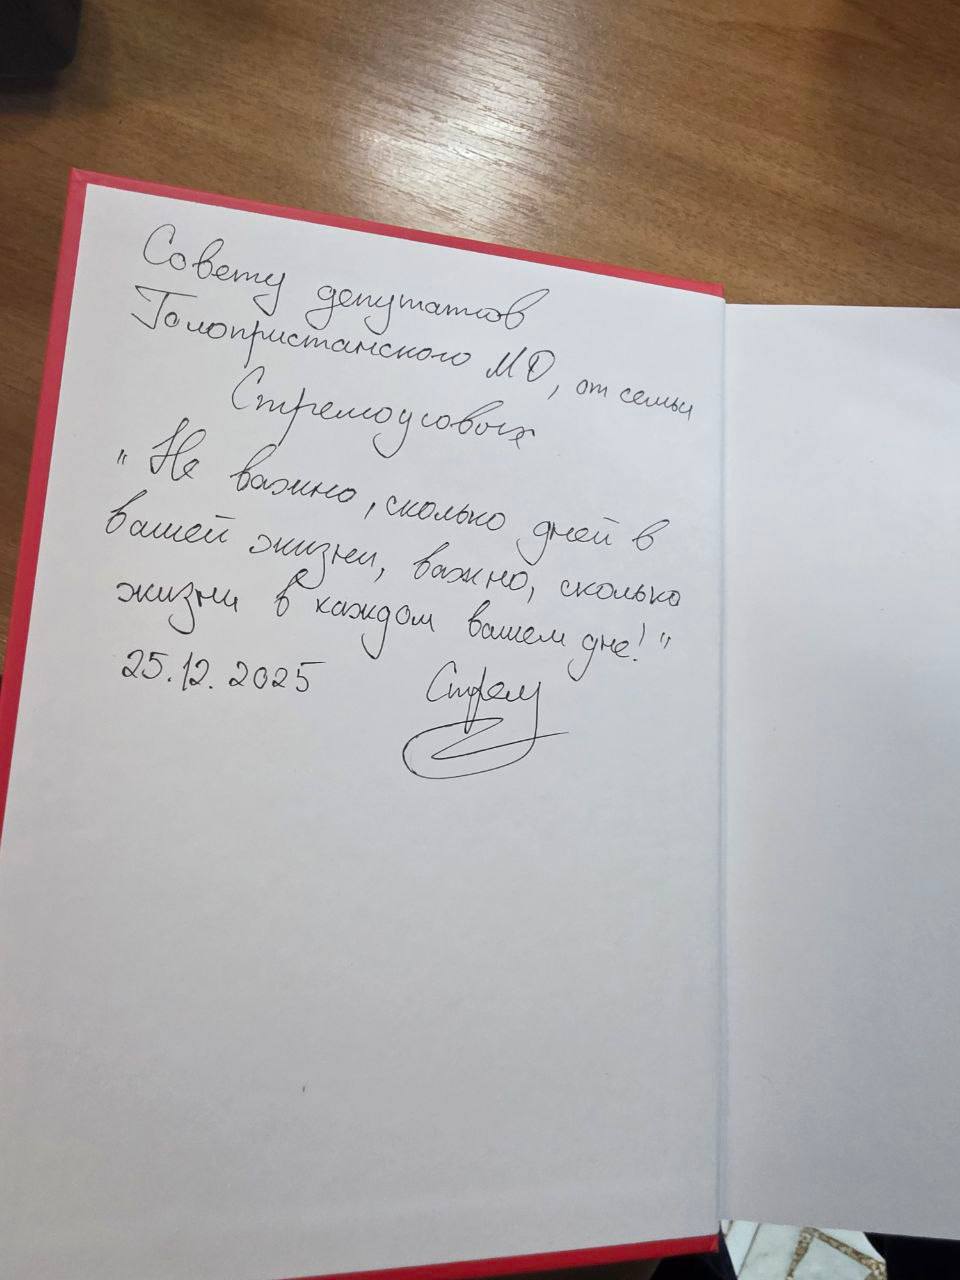 Совету депутатов
Голопристанского МО, от семьи
Стремоусовых
"Не важно, сколько дней в
вашей жизни, важно, сколько
жизни в каждом вашем дне!"
25.12.2025 Стрем